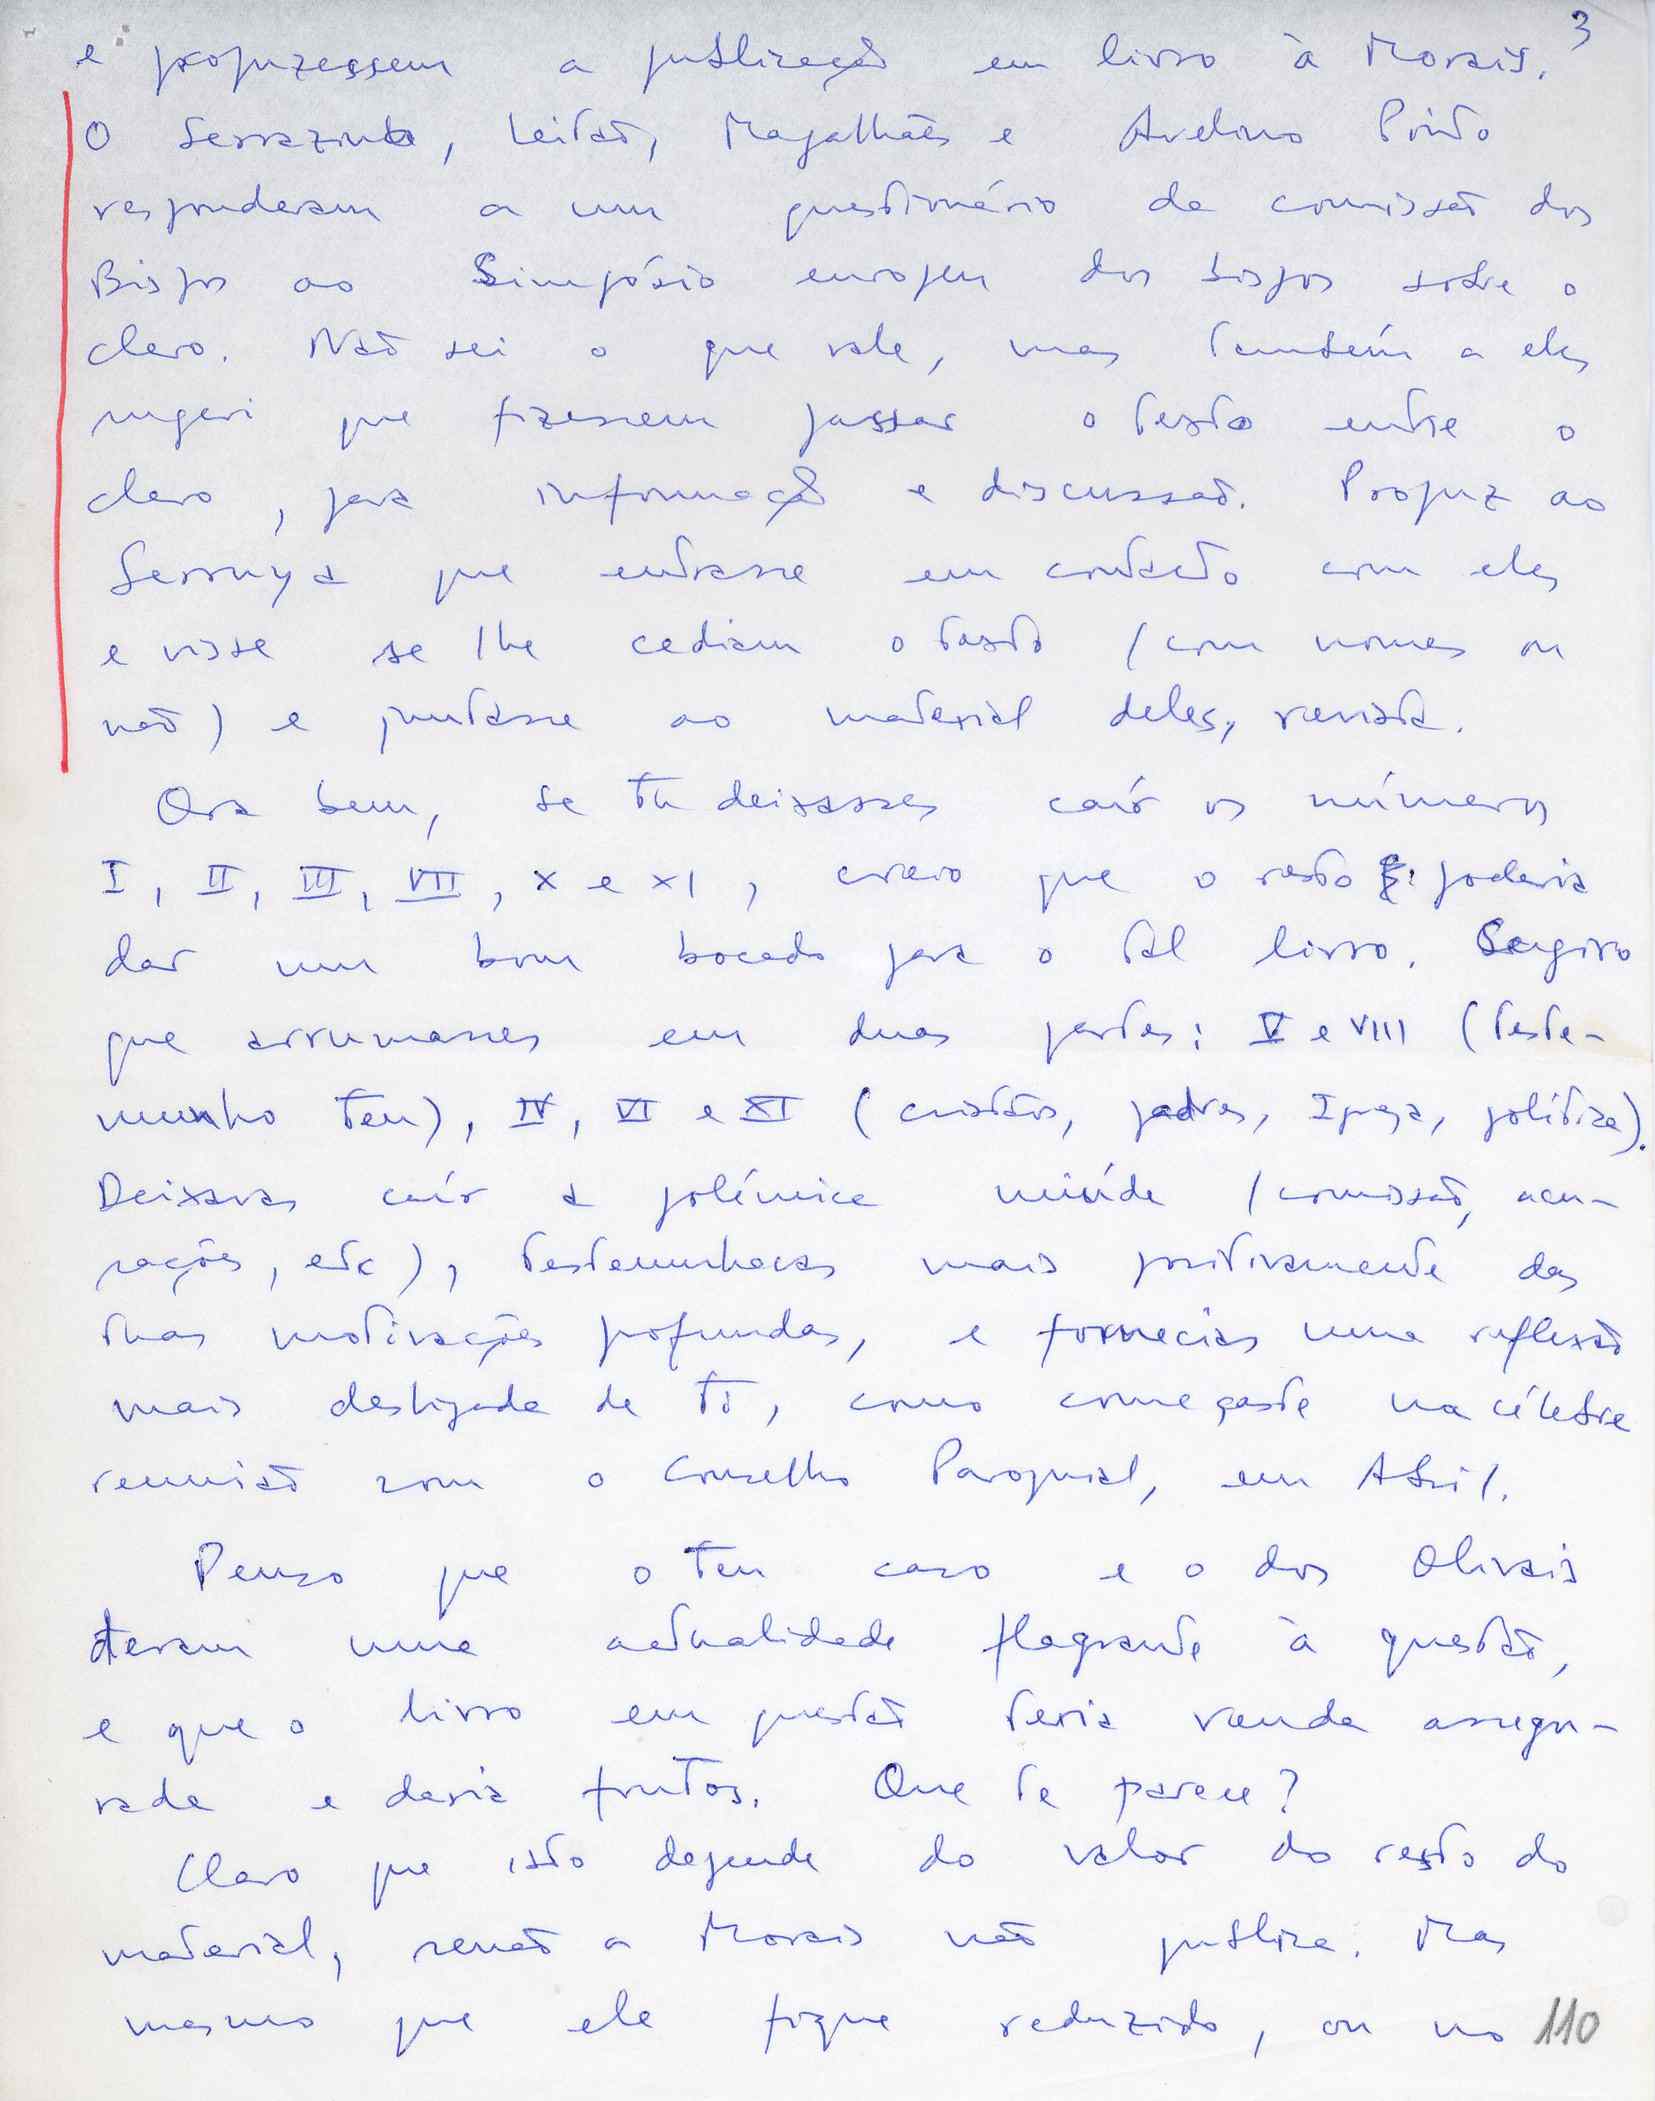 3
e propuzessem a publicação em livro à Morais.
O Serrazina, Leitão, Magalhães e Avelino Pinto
responderam a um questionário da comissão dos
Bispos ao Simpósio europeu dos bispos sobre o
clero. Não sei o que vale, mas também a eles
sugeri que fizessem passar o texto entre o
clero, para informação e discussão. Propuz ao
Serruya que entrasse em contacto com eles
e visse se lhe cediam o texto (com nomes ou
não) e juntasse ao material deles, revista.
Ora bem, se tu deixasses cair os números
I, II, III, VII, X e XI, creio que o resto poderia
dar um bom bocado para o tal livro. Sugiro
que arrumasses em duas partes: V e VIII (teste-
munho teu), IV, VI e XI (cristãos, padres, Igreja, política).
Deixavas cair a polémica miúda (comissão, acu-
sações, etc), testemunhavas mais positivamente das
tuas motivações profundas, e fornecias uma reflexão
mais desligada de ti, como começaste na célebre
reunião com o Conselho Paroquial, em Abril.
Penso que o teu caso e o dos Olivais
deram uma actualidade flagrante à questão,
e que o livro em questão teria venda assegu-
rada e daria frutos. Que te parece?
Claro que isto depende do valor do resto do
material, senão a Morais não publica. Mas
mesmo que ele fique reduzido, ou no
110